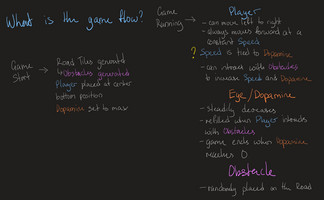 What is the game flow?
Game Start
Road Tiles generated
↳ Obstacles generated
Player placed at center
bottom position
Dopamine set to max
Game Running
Player
- can move left to right
- always moves forward at a
constant Speed
? Speed is tied to Dopamine
- can interact with Obstacles
to increase Speed and Dopamine
Eye/Dopamine
- steadily decreases
- refilled when Player interacts
with Obstacles
- game ends when Dopamine
reaches 0
Obstacle
- randomly placed on the Road